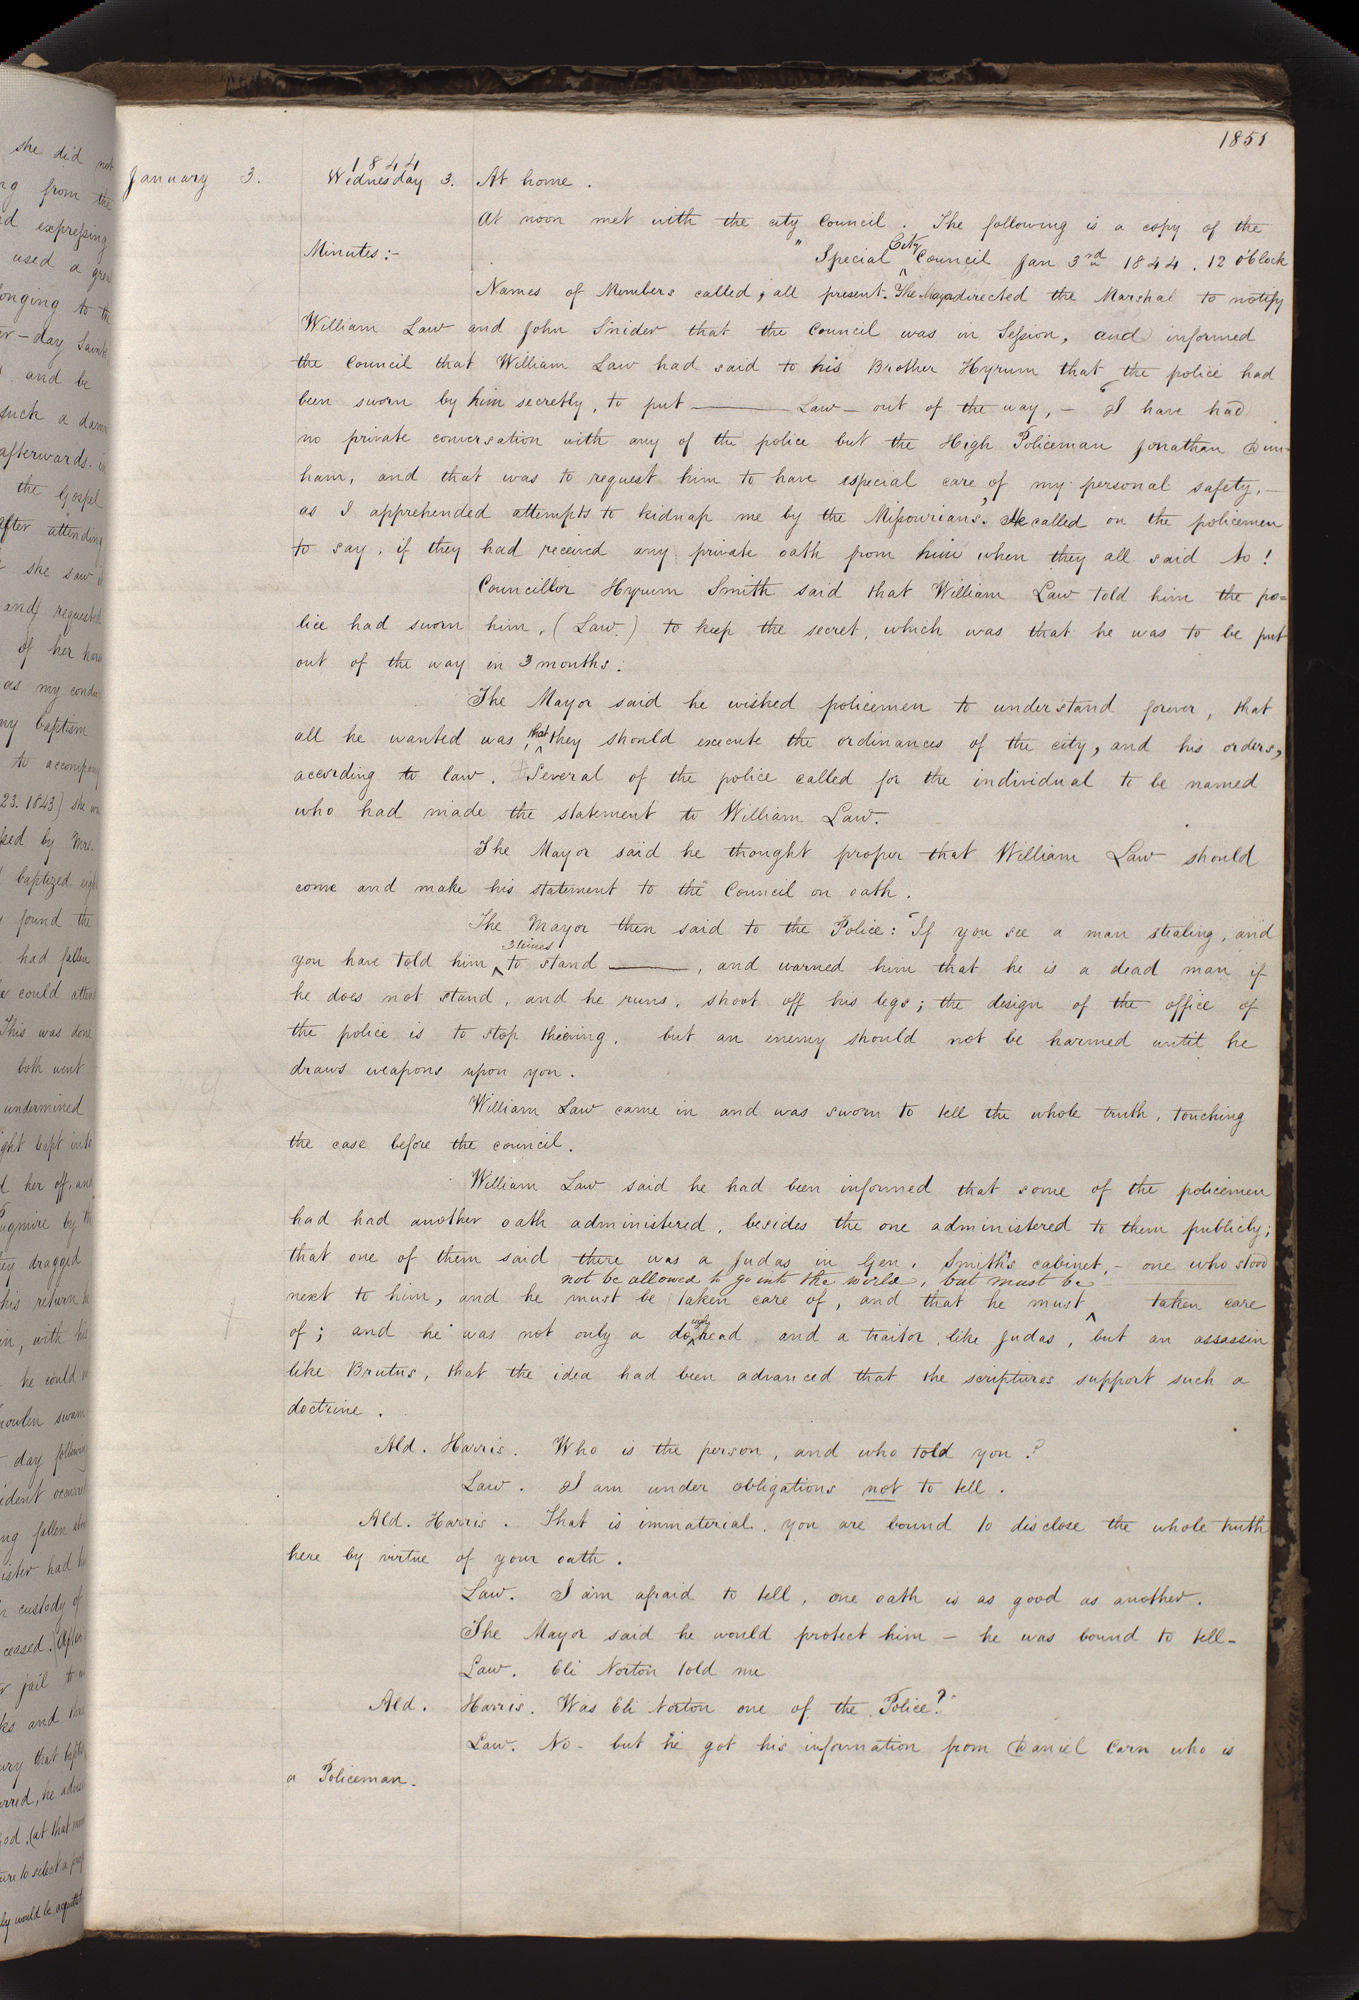 1851
1844
January 3. Wednesday 3. At home.
At noon met with the city Council. The following is a copy of the
Minutes:- "Special City Council Jan 3rd 1844. 12 o'clock
Names of Members called, all present. The Mayor directed the Marshal to notify
William Law and John Snider that the Council was in Session, and informed
the Council that William Law had said to his Brother Hyrum that the police had
been sworn by him secretly, to put ——— Law — out of the way, — "I have had
no private conversation with any of the police but the High Policeman Jonathan Dun-
ham, and that was to request him to have especial care of my personal safety, —
as I apprehended attempts to kidnap me by the Missourians." He called on the policemen
to say, if they had received any private oath from him when they all said No!
Councillor Hyrum Smith said that William Law told him the po=
lice had sworn him, (Law.) to keep the secret, which was that he was to be put
out of the way in 3 months.
The Mayor said he wished policemen to understand forever, that
all he wanted was, that they should execute the ordinances of the city, and his orders,
according to law. Several of the police called for the individual to be named
who had made the statement to William Law.
The Mayor said he thought proper that William Law should
come and make his statement to the Council on oath.
The Mayor then said to the Police: "If you see a man stealing, and
you have told him 3 times to stand ———, and warned him that he is a dead man if
he does not stand, and he runs, shoot off his legs; the design of the office of
the police is to stop thieving. but an enemy should not be harmed until he
draws weapons upon you.
William Law came in and was sworn to tell the whole truth, touching
the case before the council.
William Law said he had been informed that some of the policemen
had had another oath administered, besides the one administered to them publicly;
that one of them said there was a Judas in Gen. Smith's cabinet, — one who stood
not be allowed to go into the world, but must be
next to him, and he must be taken care of, and that he must taken care
of; and he was not only a dough head and a traitor, like Judas, but an assassin
like Brutus, that the idea had been advanced that the scriptures support such a
doctrine.
Ald. Harris. Who is the person, and who told you?
Law. I am under obligations not to tell.
Ald. Harris. That is immaterial, you are bound to disclose the whole truth
here by virtue of your oath.
Law. I am afraid to tell, one oath is as good as another.
The Mayor said he would protect him — he was bound to tell—
Law. Eli Norton told me
Ald. Harris. Was Eli Norton one of the Police?
Law. No— but he got his information from Daniel Carn who is
a Policeman.
she did not
from the
expressing
used a great
longing to the
-day Saints
and be
such a
afterwards.
the Gospel
after attending
she saw
and requested
of her
as my
my baptism
to accompany
23. 1843) she
by Mrs.
baptized
found the
had fallen
could
This was done
both went
undermined
her off, and
by
dragged
his return
with his
he could
swam
day following
fallen
sister had
custody of
ceased.
jail
and
that
he
(at that
to select a
would be